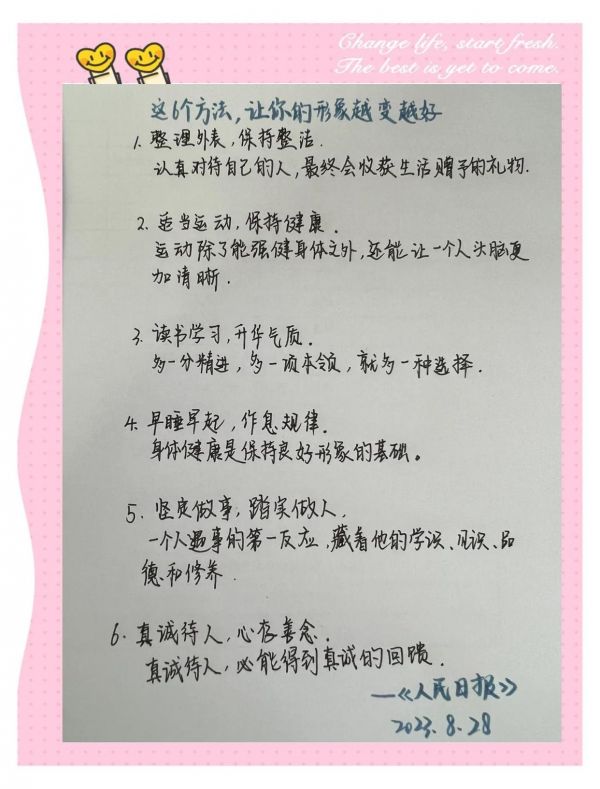 Change life, start fresh.
The best is yet to come.
这6个方法,让你的形象越变越好
1. 整理外表,保持整洁.
认真对待自己的人,最终会收获生活赠予的礼物.
2. 适当运动,保持健康.
运动除了能强健身体之外,还能让一个人头脑更
加清晰.
3. 读书学习,升华气质.
多一分精进,多一项本领,就多一种选择.
4. 早睡早起,作息规律.
身体健康是保持良好形象的基础。
5. 坚定做事,踏实做人.
一个人遇事的第一反应,藏着他的学识、见识、品
德和修养.
6. 真诚待人,心存善念.
真诚待人,必能得到真诚的回馈.
—《人民日报》
2023.8.28